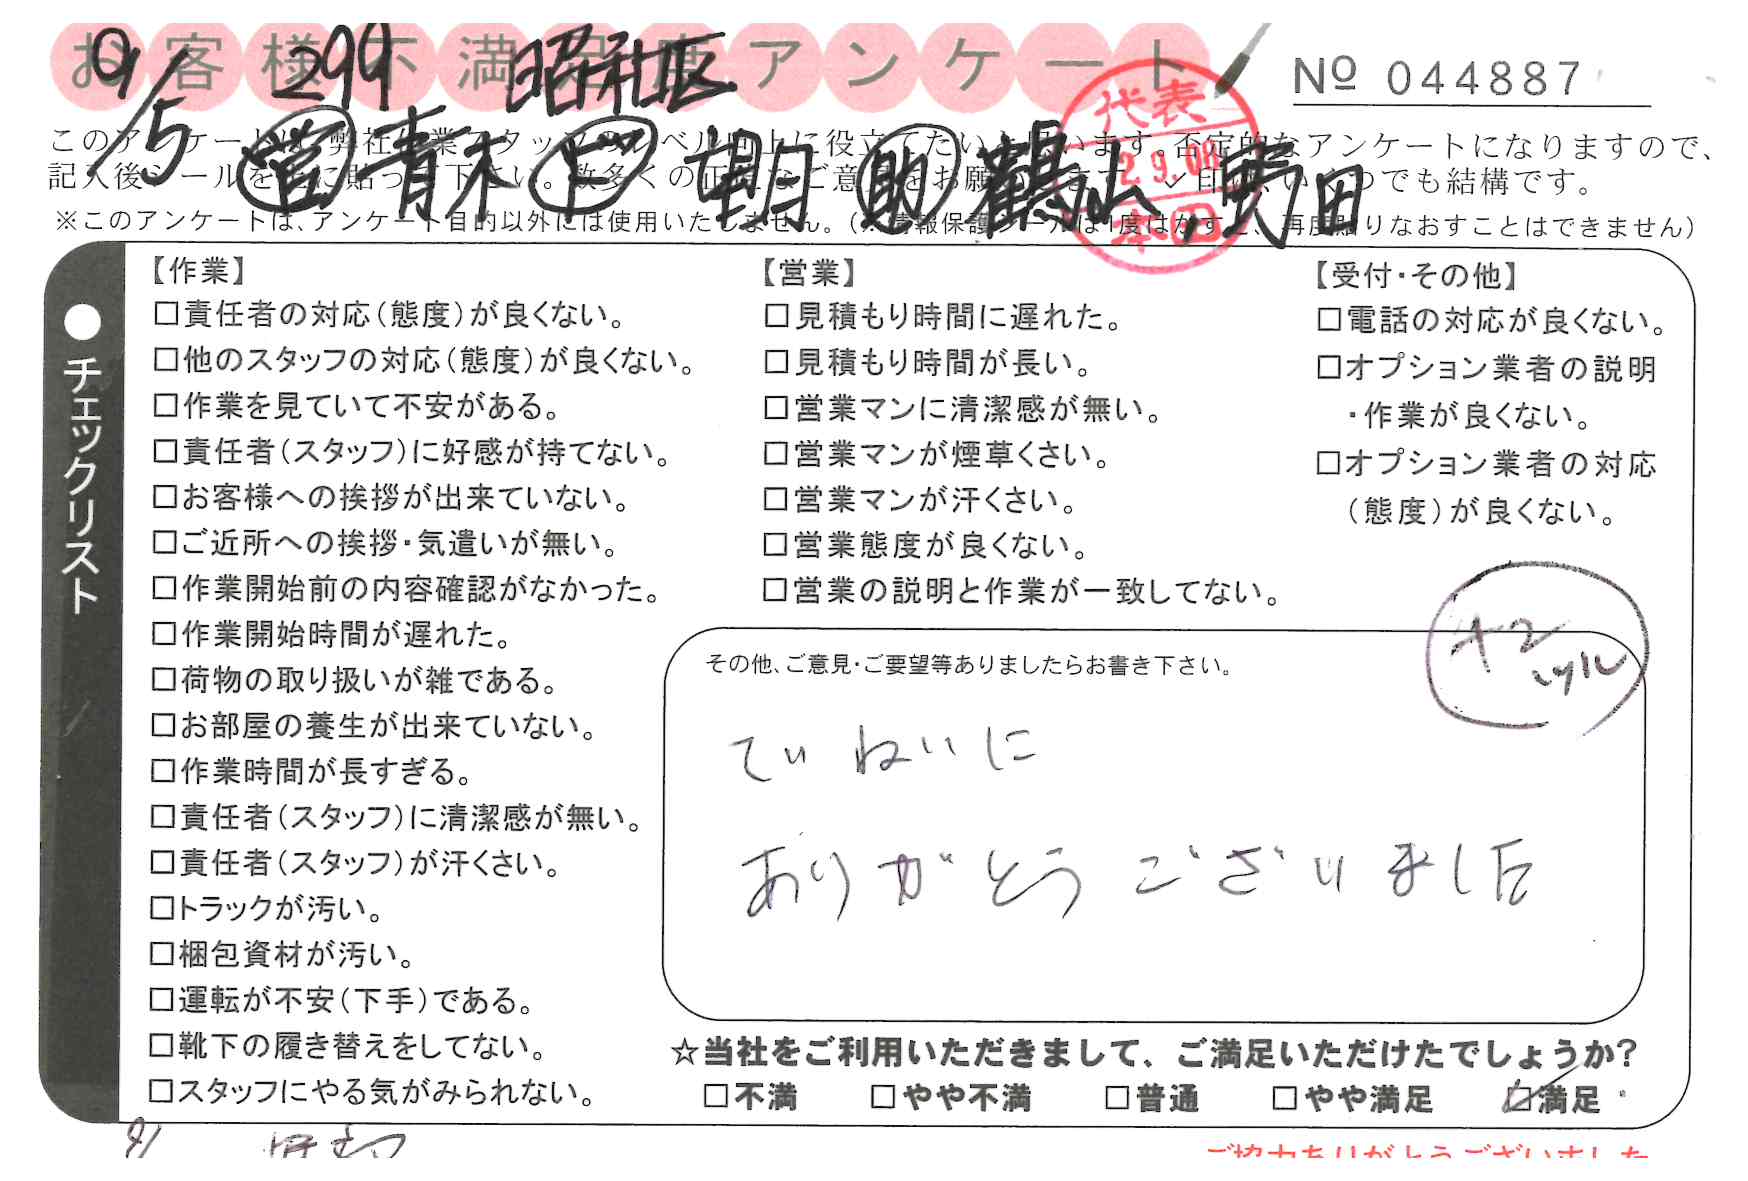 お客様不満足度アンケート
№ 044887
9/5 299 昭和区
営 青木 ド 朝 助 鶴山、野田
代表
2 9.08
本田
このアンケートは、弊社作業スタッフのレベル向上に役立てたいと思います。否定的なアンケートになりますので、
記入後シールを上に貼って下さい。数多くの正直なご意見をお願いします。✓印は、いくつでも結構です。
※このアンケートは、アンケート目的以外には使用いたしません。(※情報保護シールは1度はがすと、再度貼りなおすことはできません)
●チェックリスト
【作業】
□責任者の対応(態度)が良くない。
□他のスタッフの対応(態度)が良くない。
□作業を見ていて不安がある。
□責任者(スタッフ)に好感が持てない。
□お客様への挨拶が出来ていない。
□ご近所への挨拶・気遣いが無い。
□作業開始前の内容確認がなかった。
□作業開始時間が遅れた。
□荷物の取り扱いが雑である。
□お部屋の養生が出来ていない。
□作業時間が長すぎる。
□責任者(スタッフ)に清潔感が無い。
□責任者(スタッフ)が汗くさい。
□トラックが汚い。
□梱包資材が汚い。
□運転が不安(下手)である。
□靴下の履き替えをしてない。
□スタッフにやる気がみられない。
【営業】
□見積もり時間に遅れた。
□見積もり時間が長い。
□営業マンに清潔感が無い。
□営業マンが煙草くさい。
□営業マンが汗くさい。
□営業態度が良くない。
□営業の説明と作業が一致してない。
【受付・その他】
□電話の対応が良くない。
□オプション業者の説明
・作業が良くない。
□オプション業者の対応
(態度)が良くない。
その他、ご意見・ご要望等ありましたらお書き下さい。
ていねいに
ありがとうございました
☆当社をご利用いただきまして、ご満足いただけたでしょうか?
□不満 □やや不満 □普通 □やや満足 ☑満足
ご協力ありがとうございました